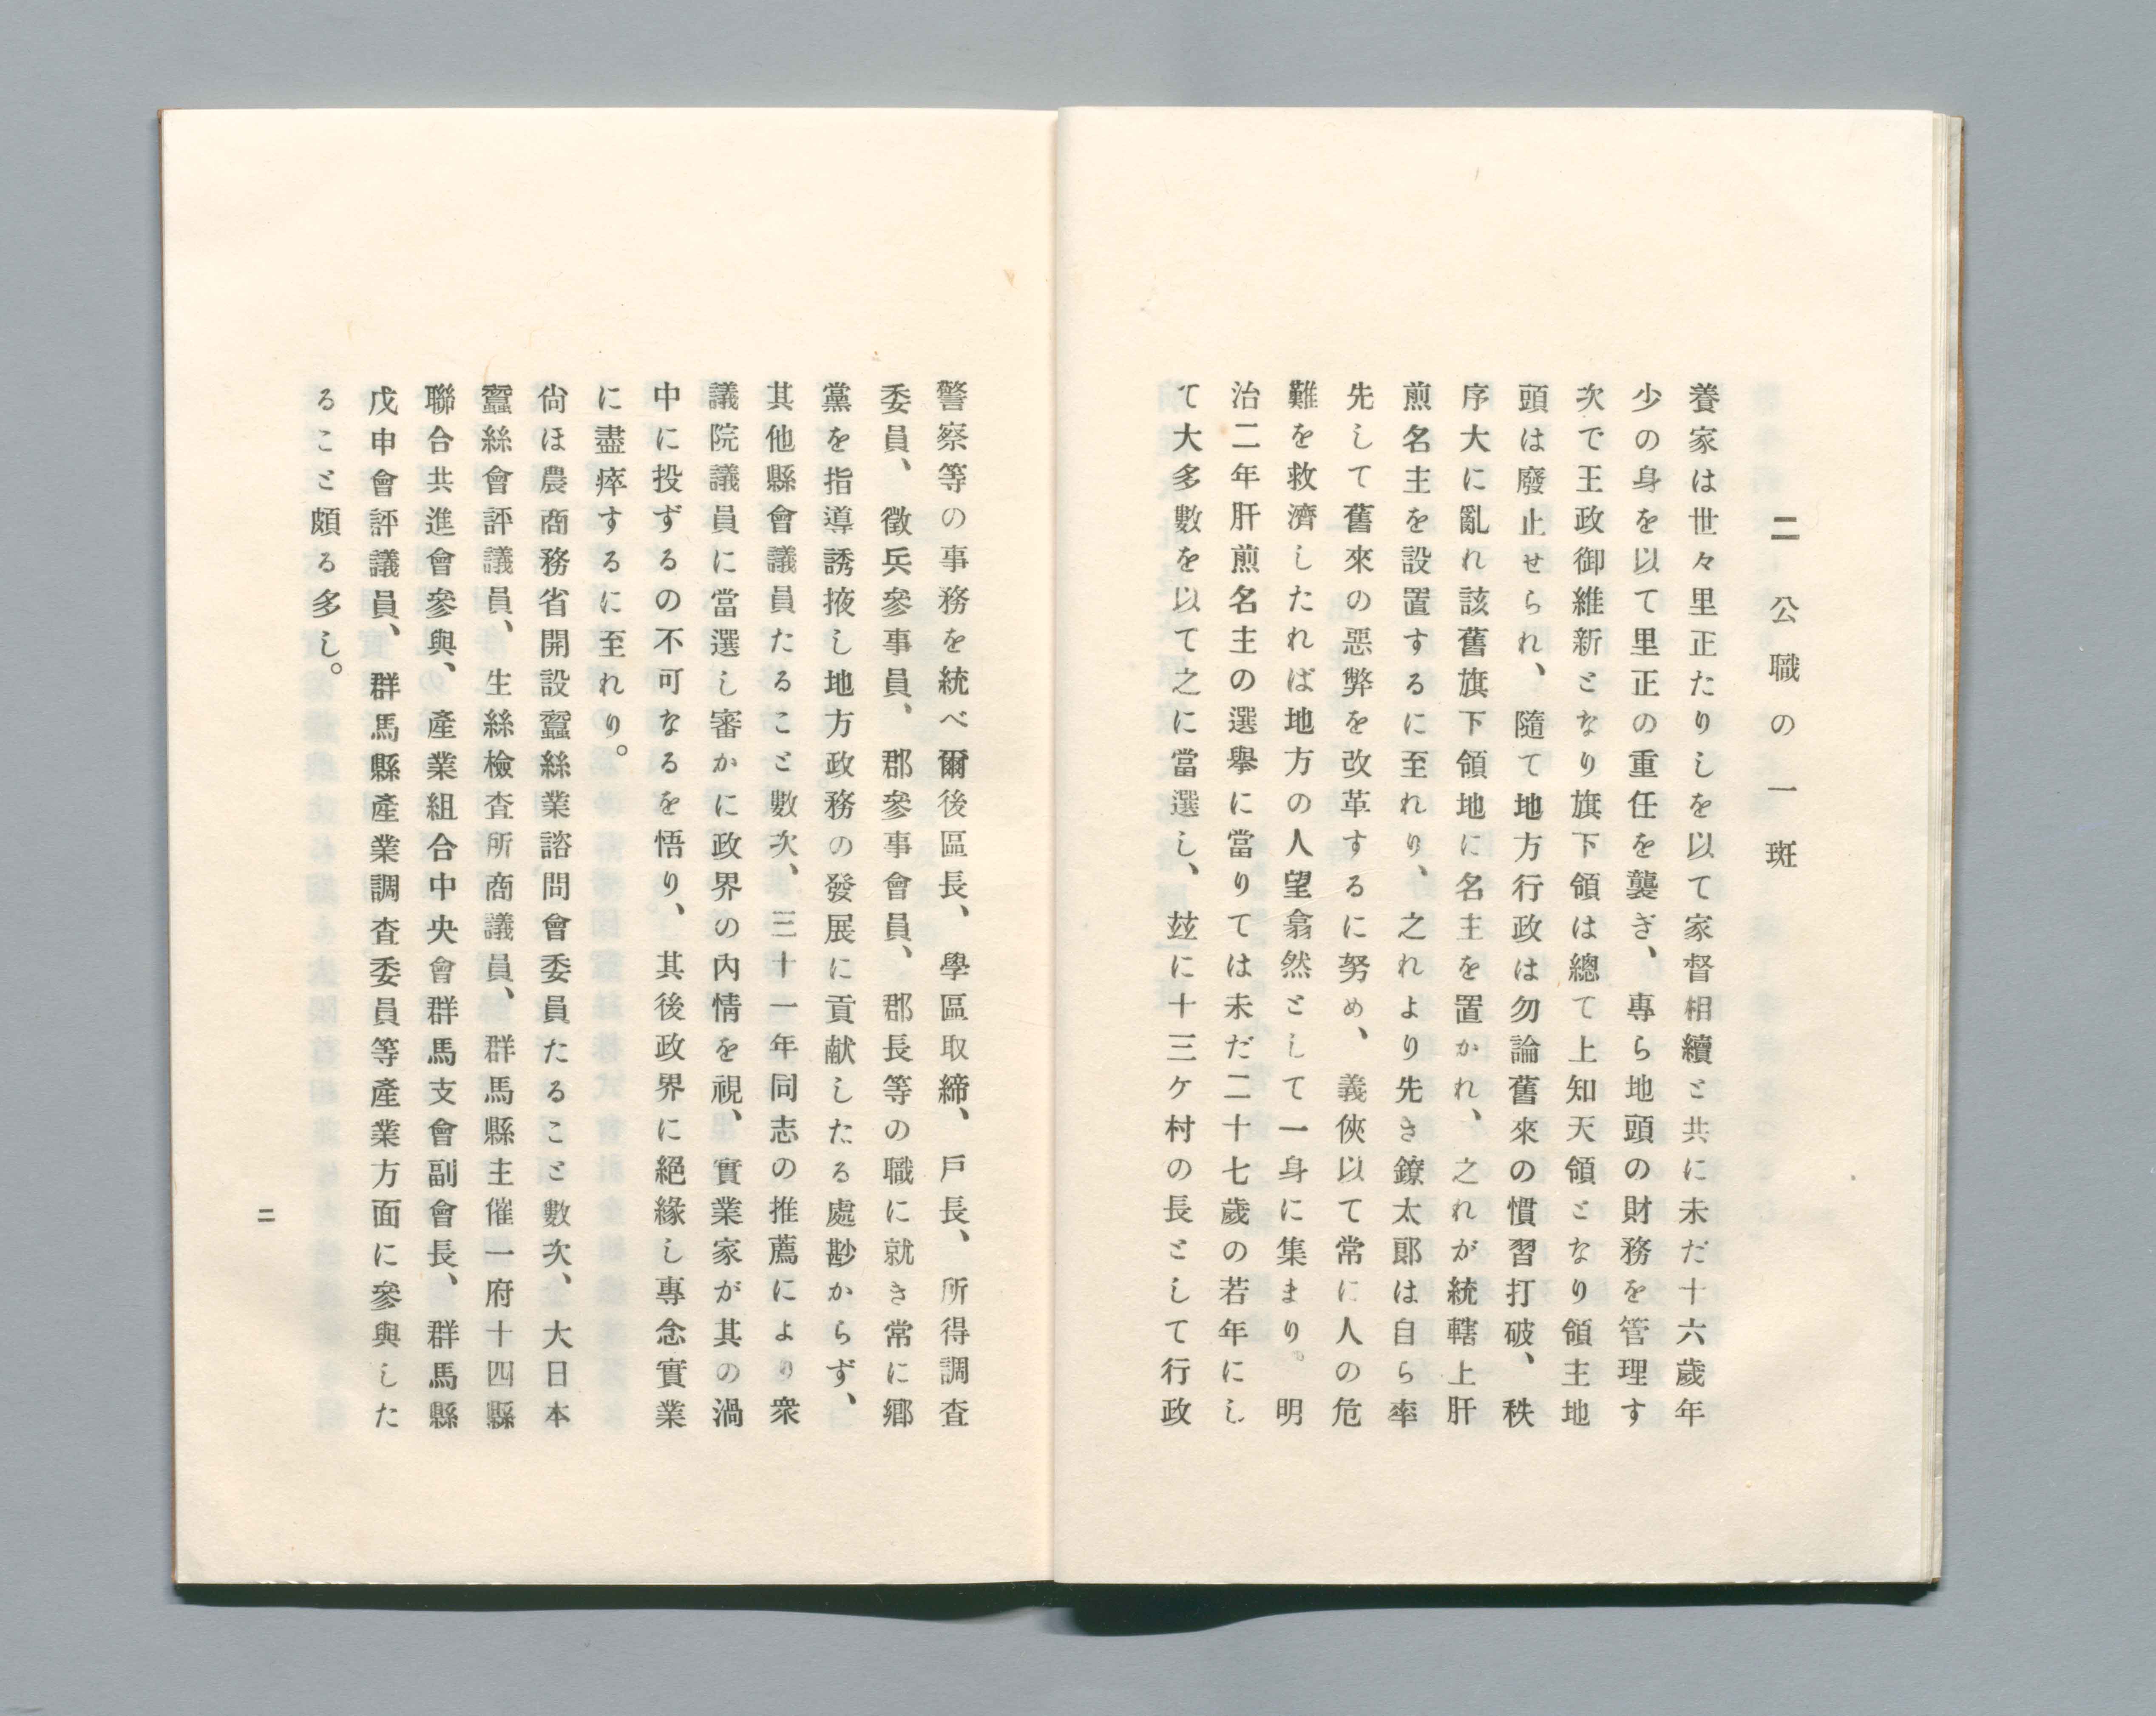 二 公職の一斑
養家は世々里正たりしを以て家督相續と共に未だ十六歲年
少の身を以て里正の重任を襲ぎ、專ら地頭の財務を管理す
次で王政御維新となり旗下領は總て上知天領となり領主地
頭は廢止せられ、隨て地方行政は勿論舊來の慣習打破、秩
序大に亂れ該舊旗下領地に名主を置かれ、之れが統轄上肝
煎名主を設置するに至れり、之れより先き鐐太郞は自ら率
先して舊來の惡弊を改革するに努め、義俠以て常に人の危
難を救濟したれば地方の人望翕然として一身に集まり。明
治二年肝煎名主の選擧に當りては未だ二十七歲の若年にし
て大多數を以て之に當選し、玆に十三ケ村の長として行政
警察等の事務を統べ爾後區長、學區取締、戶長、所得調査
委員、徵兵參事員、郡參事會員、郡長等の職に就き常に鄕
黨を指導誘掖し地方政務の發展に貢献したる處尠からず、
其他縣會議員たること數次、三十一年同志の推薦により衆
議院議員に當選し審かに政界の內情を視、實業家が其の渦
中に投ずるの不可なるを悟り、其後政界に絕緣し專念實業
に盡瘁するに至れり。
尙ほ農商務省開設蠶絲業諮問會委員たること數次、大日本
蠶絲會評議員、生絲檢査所商議員、群馬縣主催一府十四縣
聯合共進會參與、產業組合中央會群馬支會副會長、群馬縣
戊申會評議員、群馬縣產業調査委員等產業方面に參與した
ること頗る多し。
二